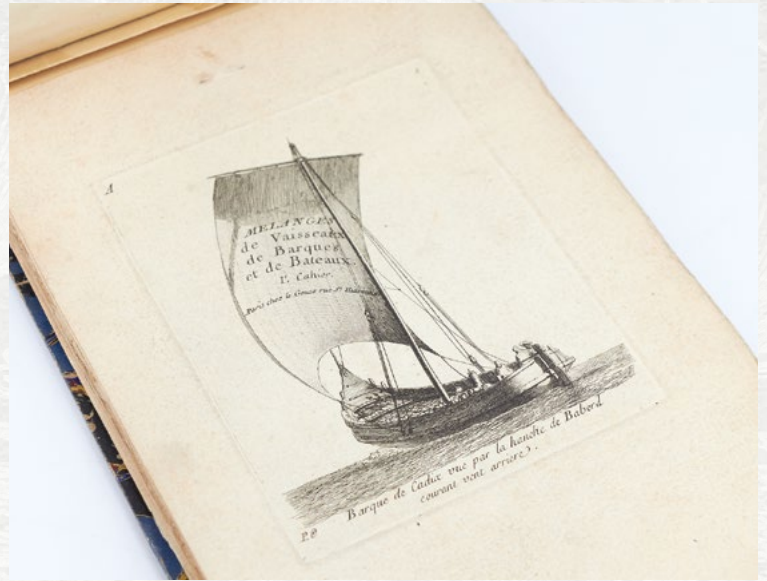 A
MELANGES
de Vaisseaux
de Barques
et de Bateaux.
1r. Cahier.
Paris chez le Gouaz rue St.
Barque de Cadix vue par la hanche de Babord
courant vent arriere.
P.